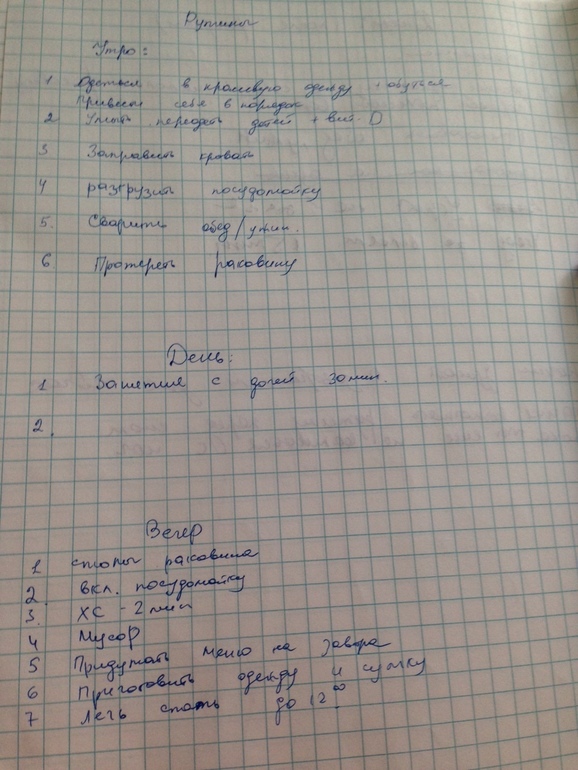 Рутины
Утро:
1 Одеться в красивую одежду + обуться
Привести себя в порядок
2 Умыть переодеть детей + вит. D
3 Заправить кровать
4 разгрузить посудомойку
5. Сварить обед/ужин.
6 Протереть раковину
День:
1 Занятие с дочей 30 мин.
2.
Вечер
1 столы раковина
2. вкл. посудомойку
3. ХС - 2 мин
4 Мусор
5 Придумать меню на завтра
6 Приготовить одежду и сумку
7 Лечь спать до 12⁰⁰